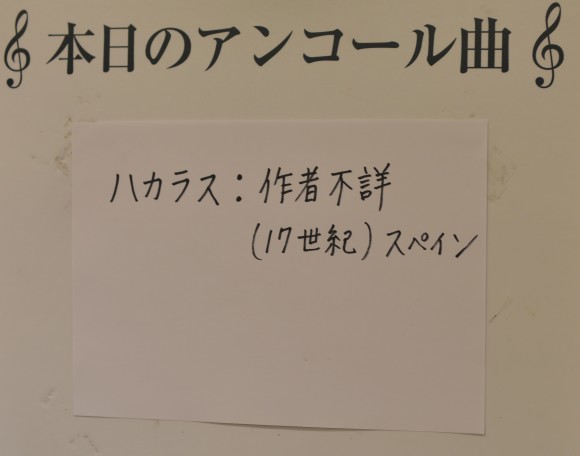 本日のアンコール曲
ハカラス：作者不詳
(17世紀) スペイン